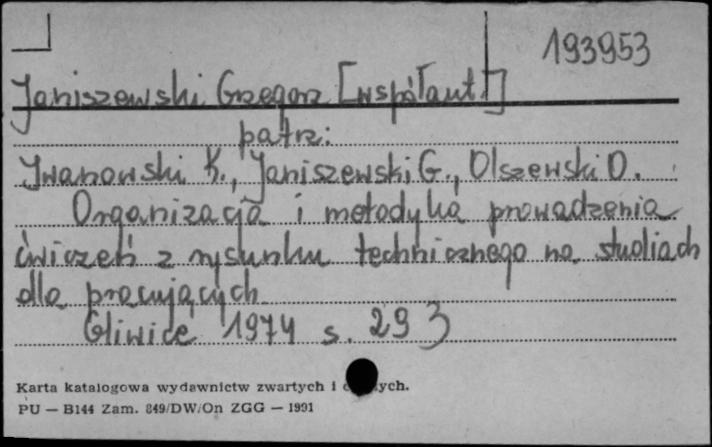 193953
Janiszewski Grzegorz [współaut.]
patrz:
Iwanowski K., Janiszewski G., Olszewski O.
Organizacja i metodyka prowadzenia
ćwiczeń z rysunku technicznego na studiach
dla pracujących
Gliwice 1974 s. 293
Karta katalogowa wydawnictw zwartych i
PU — B144 Zam. 849/DW/On ZGG — 1991